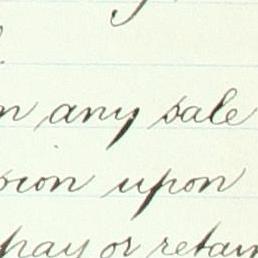 n any sale
sion upon
pay or retain